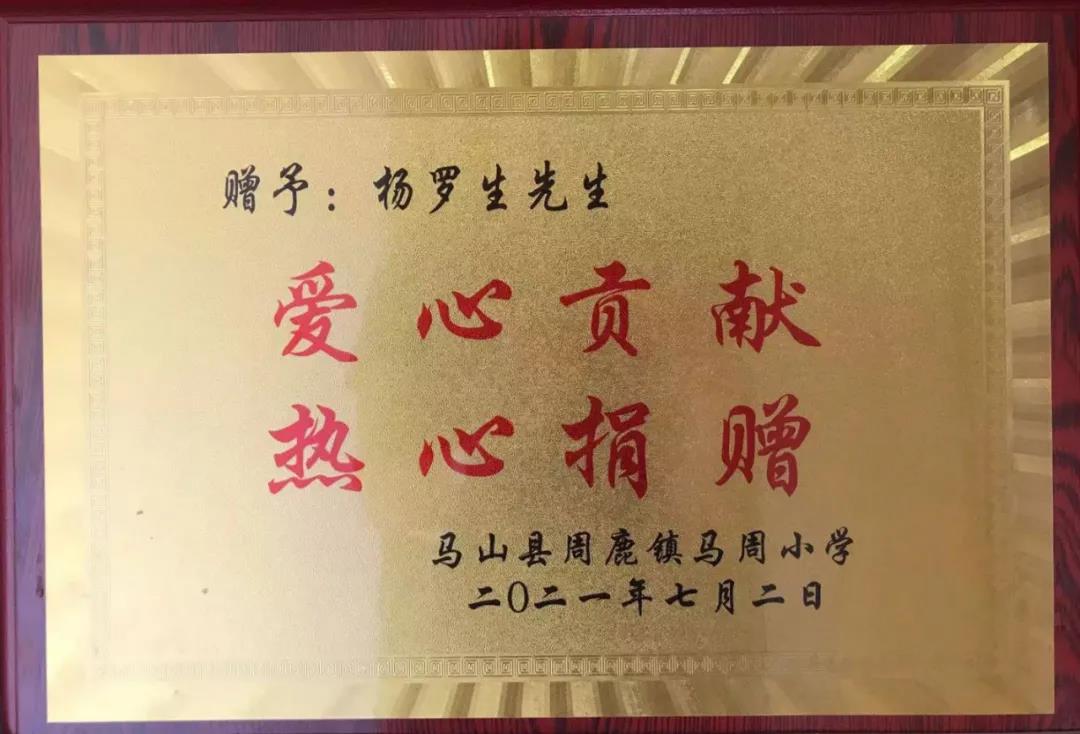 赠予：杨罗生先生
爱心贡献
热心捐赠
马山县周鹿镇马周小学
二〇二一年七月二日